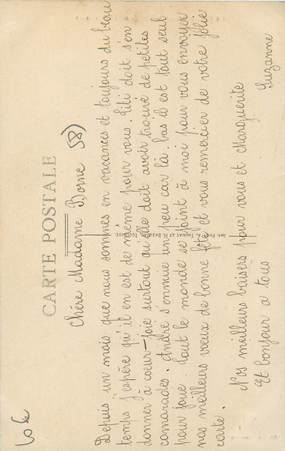 CARTE POSTALE
(58)
Chère Madame Borne
Depuis un mois que nous sommes en vacances et toujours du beau
temps j'espère qu'il en est de même pour vous. Lili doit s'en
donner à cœur-joie surtout ou elle doit avoir trouvé de petites
camarades. André s'ennuie un peu car là bas il est tout seul
pour jouer. Tout le monde se joint à moi pour vous envoyer
nos meilleurs vœux de bonne fête et vous remercier de votre jolie
carte.
Nos meilleurs baisers pour vous et Marguerite
Et bonjour a tous
Suzanne